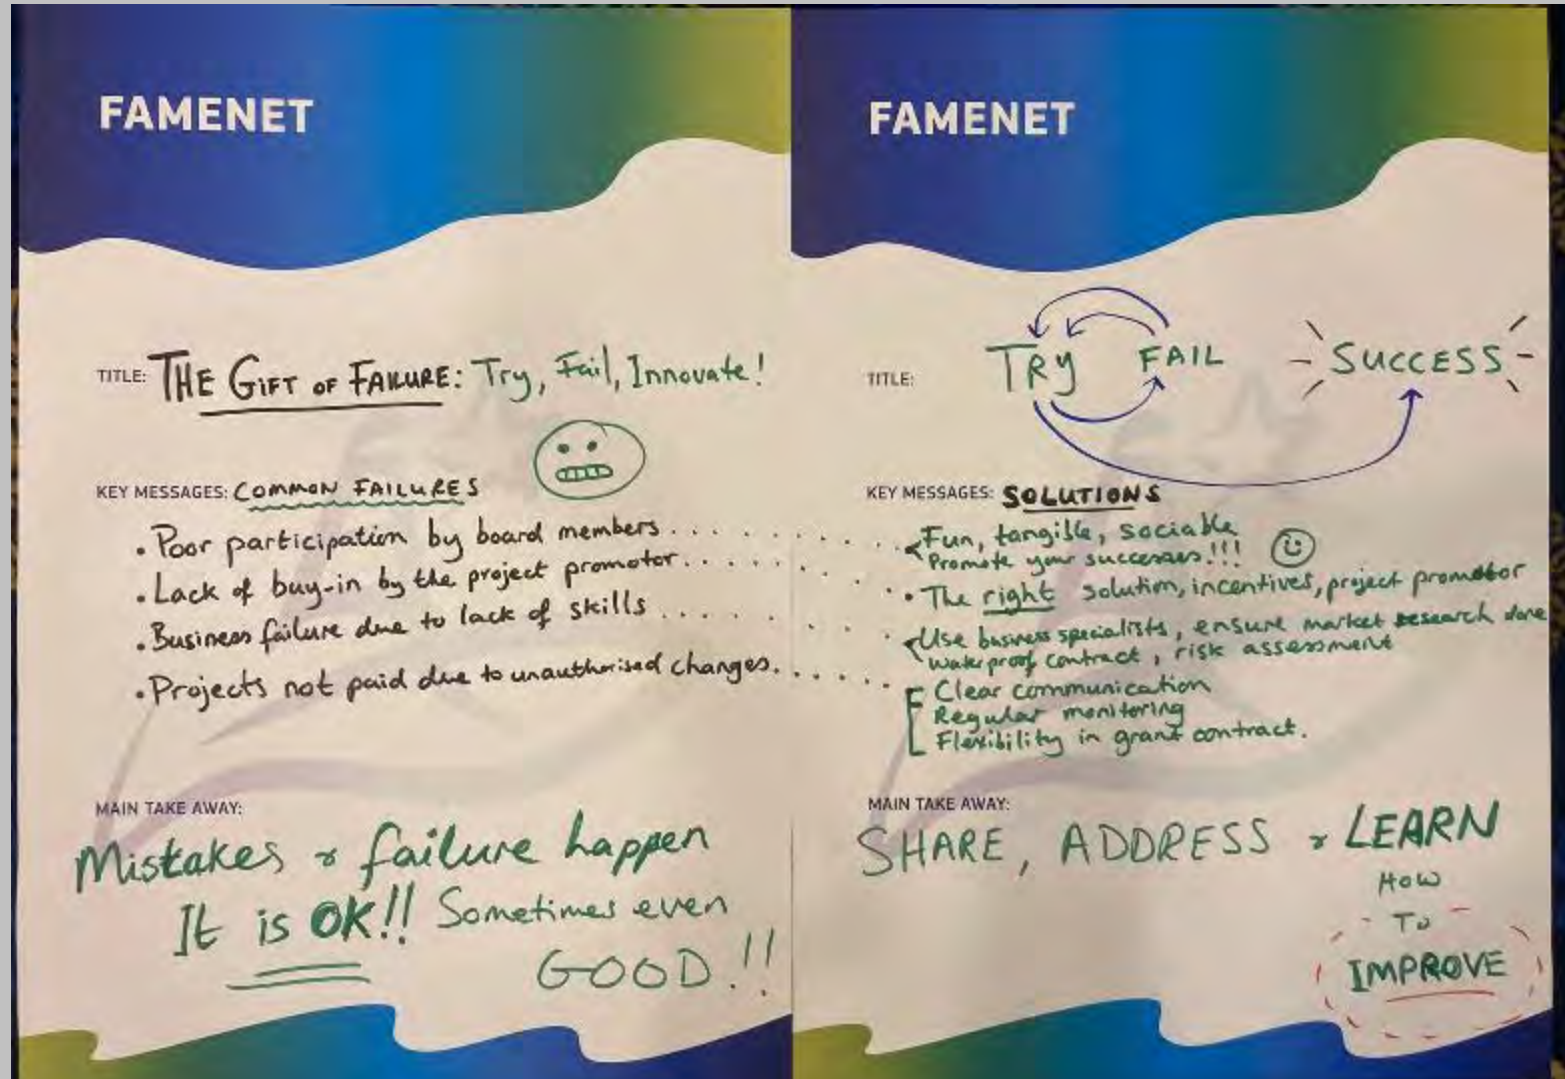 FAMENET
TITLE: THE GIFT OF FAILURE: Try, Fail, Innovate!
KEY MESSAGES: COMMON FAILURES
• Poor participation by board members . . . . . . . . . . .
• Lack of buy-in by the project promotor . . . . . . . . .
• Business failure due to lack of skills . . . . . . . . . .
• Projects not paid due to unauthorised changes. . . . . . .
MAIN TAKE AWAY:
Mistakes & failure happen
It is OK!! Sometimes even
GOOD!!
FAMENET
TITLE: TRY FAIL SUCCESS
KEY MESSAGES: SOLUTIONS
Fun, tangible, sociable
Promote your successes!!!
• The right solution, incentives, project promotor
Use business specialists, ensure market research done
waterproof contract, risk assessment
Clear communication
Regular monitoring
Flexibility in grant contract.
MAIN TAKE AWAY:
SHARE, ADDRESS & LEARN
HOW
TO
IMPROVE